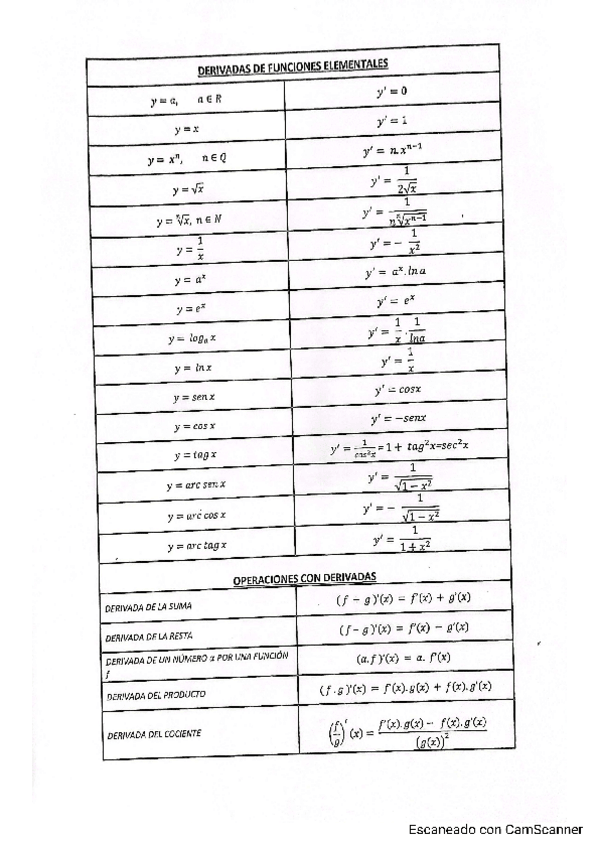 DERIVADAS DE FUNCIONES ELEMENTALES
y = a, a ∈ R y' = 0
y = x y' = 1
y = xⁿ, n ∈ Q y' = n.xⁿ⁻¹
y = √x y' = 1/(2√x)
y = ⁿ√x, n ∈ N y' = 1/(n ⁿ√xⁿ⁻¹)
y = 1/x y' = − 1/x²
y = aˣ y' = aˣ.ln a
y = eˣ y' = eˣ
y = logₐ x y' = 1/x . 1/lna
y = ln x y' = 1/x
y = sen x y' = cosx
y = cos x y' = −senx
y = tag x y' = 1/cos²x = 1 + tag²x=sec²x
y = arc sen x y' = 1/√(1 − x²)
y = arc cos x y' = − 1/√(1 − x²)
y = arc tag x y' = 1/(1 + x²)
OPERACIONES CON DERIVADAS
DERIVADA DE LA SUMA (f − g)'(x) = f'(x) + g'(x)
DERIVADA DE LA RESTA (f − g)'(x) = f'(x) − g'(x)
DERIVADA DE UN NÚMERO a POR UNA FUNCIÓN f (a.f)'(x) = a. f'(x)
DERIVADA DEL PRODUCTO (f.g)'(x) = f'(x).g(x) + f(x).g'(x)
DERIVADA DEL COCIENTE (f/g)'(x) = (f'(x).g(x) − f(x).g'(x))/(g(x))²
Escaneado con CamScanner